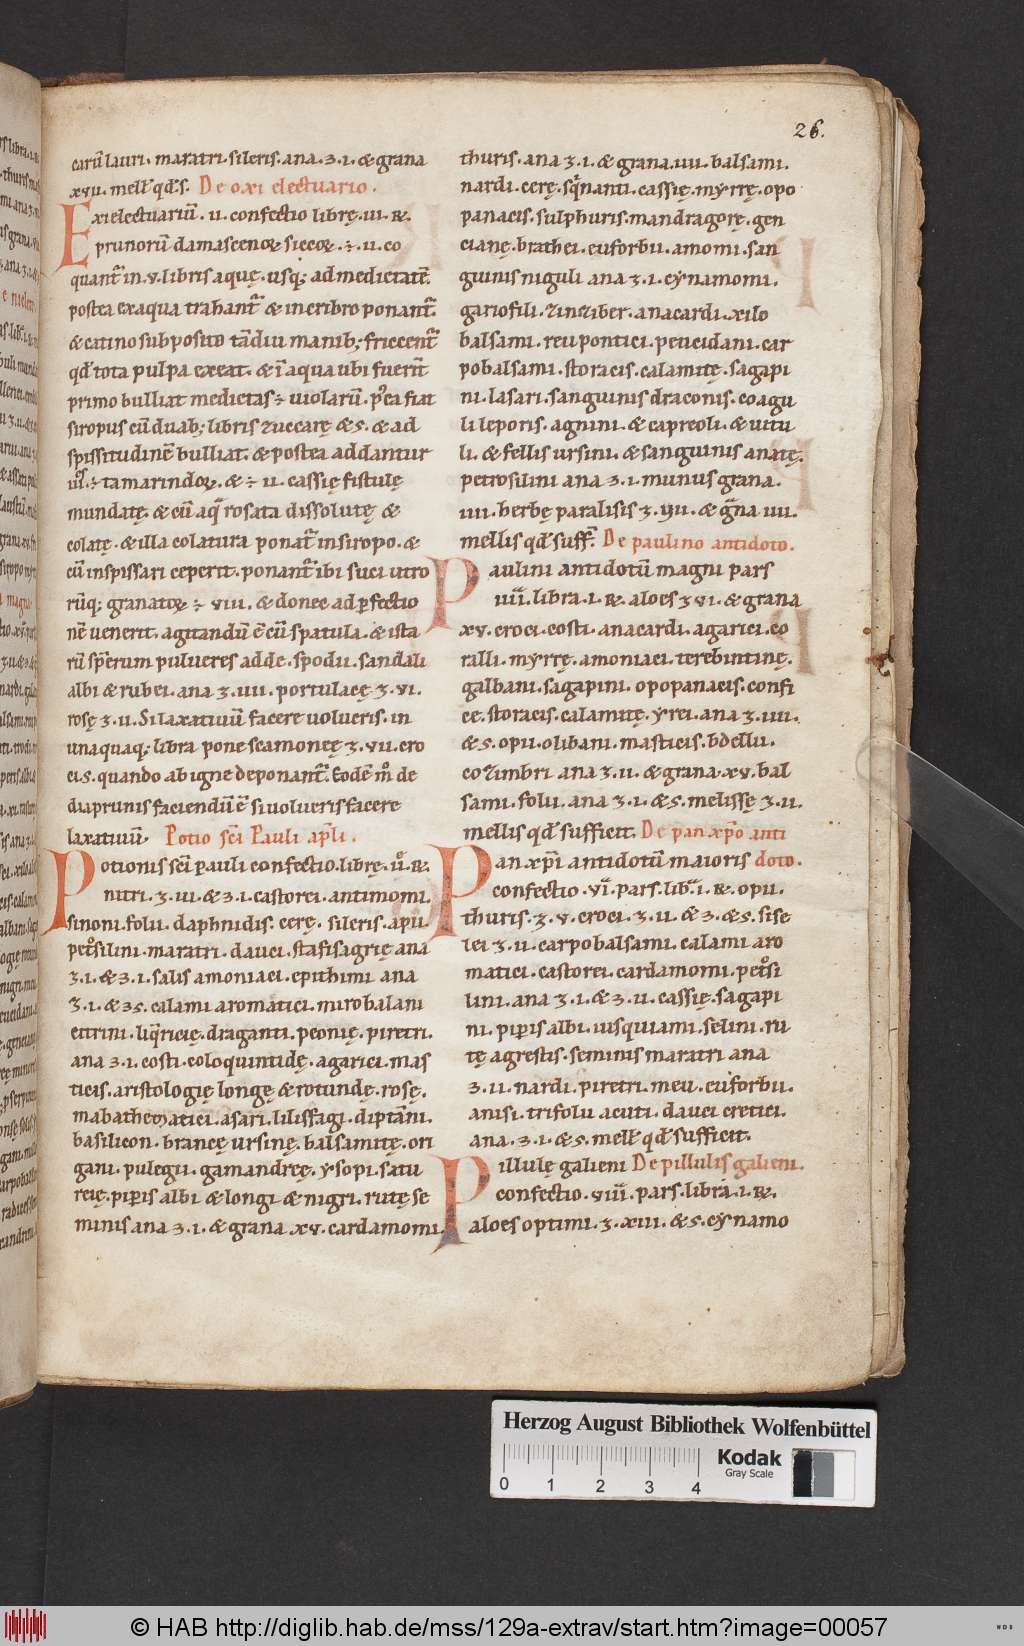 26.
carū lauri. maratri. sileris. ana. ʒ. i. & grana
xvii. mell̄ qd̄ s. De oxi electuario.
Exielectuariū. ii. confectio librę. iii. R̷.
prunorū damascenoꝝ siccoꝝ. ii. co
quant̄ in. v. libris aquę. usq; ad medietatē.
postea ex aqua trahant̄ & in cribro ponant̄.
& catino subposito tādiu manib; fricent̄
qd̄ tota pulpa exeat. & ī aqua ubi fuer̄t
primo bulliat medietas ÷ uiolarū. p̄ea fiat
siropus cū duab; libris zuccarę & s. & ad
spissitudinē bulliat. & postea addantur
÷ tamarindoꝝ. & ÷ ii. cassię fistulę
mundatę. & cū aq̄ rosata dissolutę &
colatę. & illa colatura ponat̄ in siropo. &
cū inspissari ceperit. ponant̄ ibi suci utro
rūq; granatoꝝ ÷ viii. & donec ad ꝑfectio
nē uenerit. agitandū ē cū spatula. & ista
rū sp̄erum pulueres adde. spodii. sandali
albi & rubei. ana ʒ. iiii. portulacę ʒ. vi.
rosę ʒ. ii. Si laxatiuū facere uolueris. in
unaquaq; libra pone scamoneę ʒ. vii. cro
ci. s. quando ab igne deponant̄. Eodē m̊ de
diaprunis faciendū ē si uolueris facere
laxatiuū. Potio sc̄i Pauli ap̄li.
Potionis sc̄i pauli confectio. librę. R̷.
nitri. ʒ. iii. & ʒ. i. castorei. antimomi.
sinoni. folii. daphnidis. cerę. sileris. apii.
pet̊silini. maratri. dauci. stafisagrię ana
ʒ. i. & ʒ. i. salis amoniaci. epithimi ana
ʒ. i. & ʒ s. calami aromatici. mirobalani
citrini. liq̄ricię. draganti. peonię. piretri.
ana ʒ. i. costi. coloquintidę. agarici. mas
ticis. aristologię longę & rotundę. rosę.
mabathematici. asari. lilissagi. diptāni.
basilicon. brancę ursinę. balsamitę. ori
gani. pulegii. gamandreę. ysopi. satu
reię. piꝑis albi & longi & nigri. rutę se
minis ana ʒ. i. & grana xv. cardamomi.
thuris. ana ʒ. i. & grana. iiii. balsami.
nardi. cerę. sq̄nanti. cassię. myrrę. opo
panacis. sulphuris. mandragorę. gen
cianę. brathei. euforbii. amomi. san
guinis niguli ana ʒ. i. cynamomi.
gariofili. zinziber. anacardi. xilo
balsami. reu pontici. peucidani. car
pobalsami. storacis. calamitę. sagapi
ni. lasari. sanguinis draconis. coagu
li leporis. agnini. & capreoli. & uitu
li. & fellis ursini. & sanguinis anatę.
petrosilini ana ʒ. i. munus grana.
iiii. herbę paralisis ʒ. & ḡna iiii.
mellis qd̄ suff̄. De paulino antidoto.
Paulini antidotū magni pars
viii. libra. i. R̷. aloes ʒ vi. & grana
xv. croci. costi. anacardi. agarici. co
ralli. myrrę. amoniaci. terebintinę.
galbani. sagapini. opopanacis. confi
ce. storacis. calamitę. yrei. ana ʒ. iiii.
& s. opii. olibani. masticis. bdellii.
cozimbri ana ʒ. ii. & grana. xv. bal
sami. folii. ana ʒ. i. & s. melissę ʒ. ii.
mellis qd̄ sufficit. De pan xp̄o anti
Pan xp̄i antidotū maioris doto.
confectio. vī. pars. lib̄. i. R̷. opii.
thuris. ʒ. v. croci. ʒ. ii. & ʒ. & s. sise
lei ʒ. ii. carpobalsami. calami aro
matici. castorei. cardamomi. pet̊si
lini. ana ʒ. i. & ʒ. ii. cassię. sagapi
ni. piꝑis albi. iusquiami. selini. ru
tę agrestis. seminis maratri ana
ʒ. ii. nardi. piretri. meu. euforbii.
anisi. trifolii acuti. dauci cretici.
ana. ʒ. i. & s. mell̄ qd̄ sufficit.
Pillulę galieni De pillulis galieni.
confectio. viii. pars. libra. i. R̷.
aloes optimi. ʒ. xiii. & s. cynamo
Herzog August Bibliothek Wolfenbüttel
Kodak
Gray Scale
0 1 2 3 4
© HAB http://diglib.hab.de/mss/129a-extrav/start.htm?image=00057